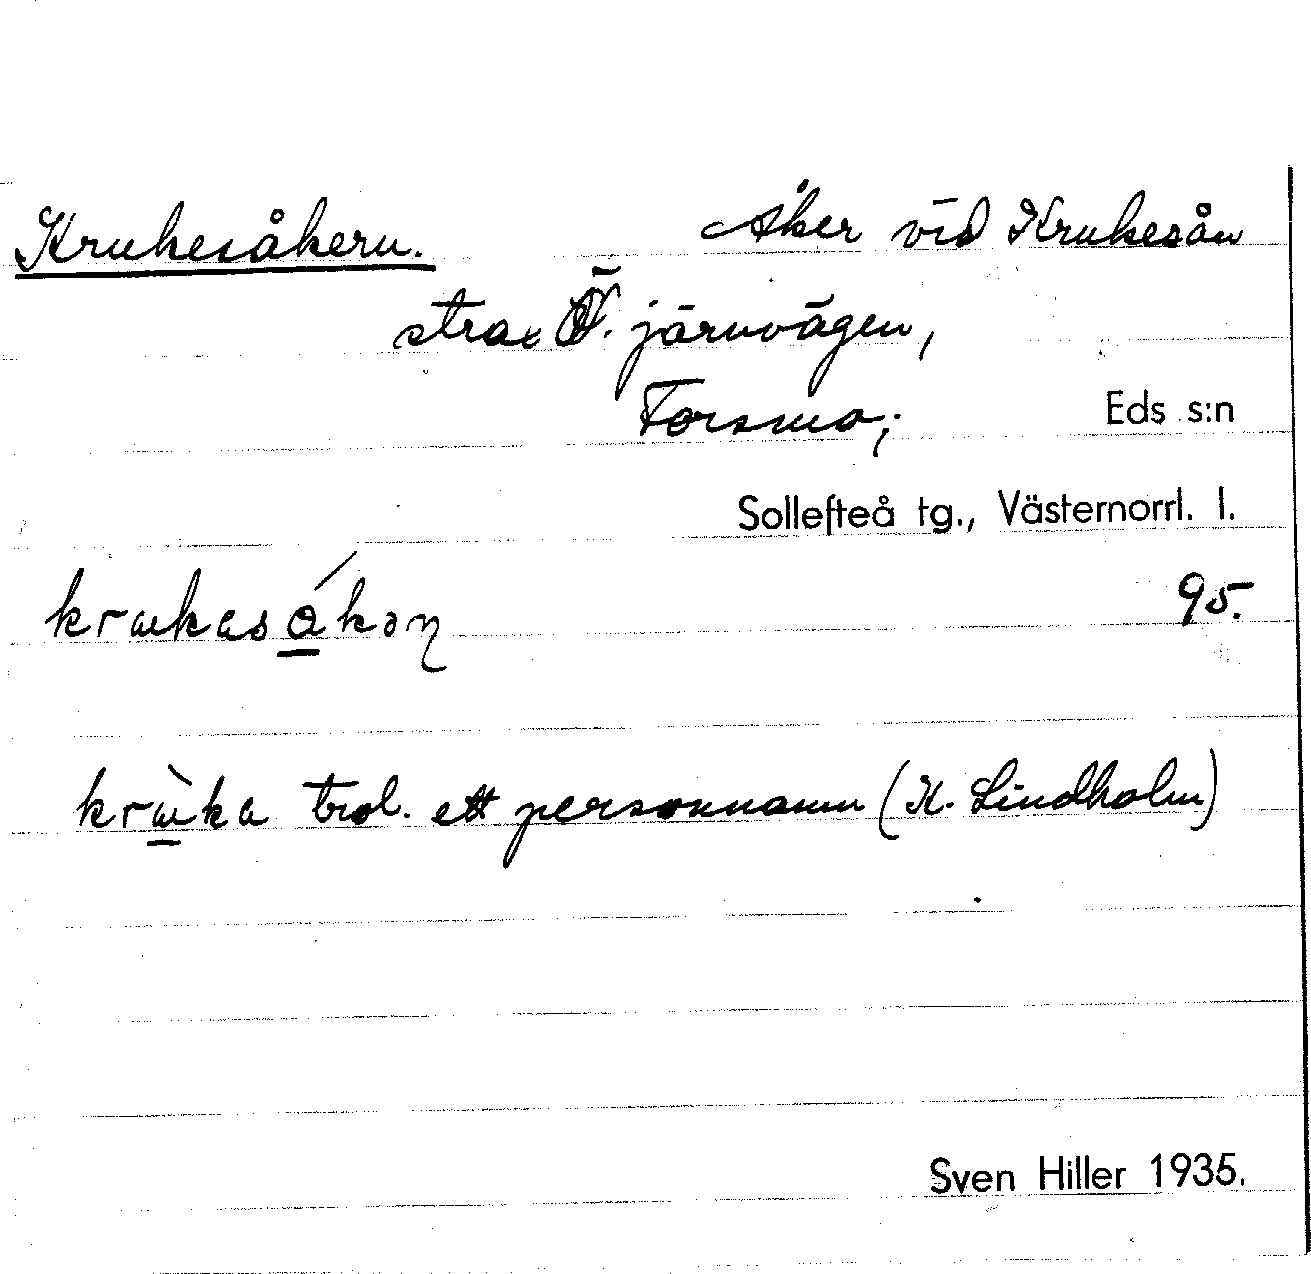 Krukesåkern. Åker vid Krukesån
strax Ö. järnvägen,
Forsmo; Eds s:n
Sollefteå tg., Västernorrl. l.
95.
trol. ett personnamn (K. Lindholm)
Sven Hiller 1935.